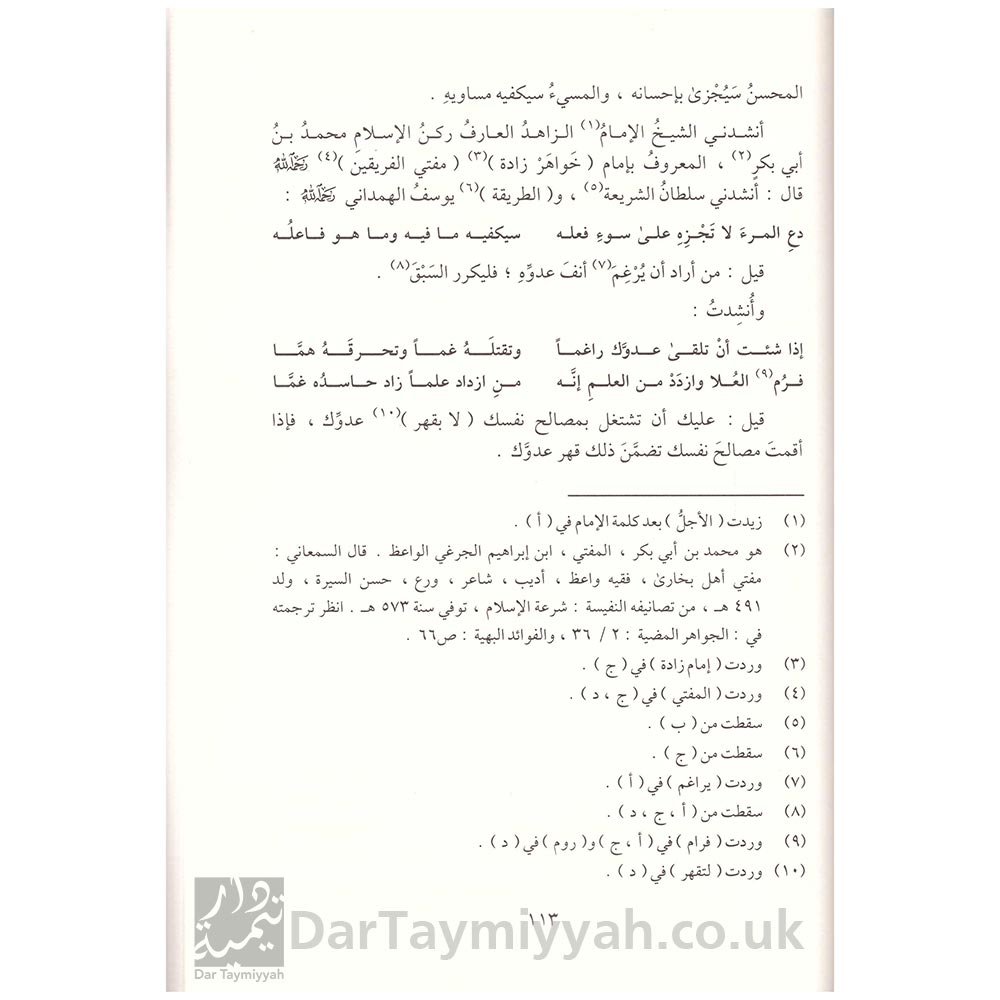 المحسنُ سَيُجْزىٰ بإحسانه ، والمسيءُ سيكفيه مساويهِ .
أنشدني الشيخُ الإمامُ(١) الزاهدُ العارفُ ركنُ الإسلامِ محمدُ بنُ
أبي بكرٍ(٢) ، المعروفُ بإمام ( خَواهَرْ زادة )(٣) ( مفتي الفريقينَ )(٤) رَحِمَهُ اللهُ
قال : أنشدني سلطانُ الشريعة(٥) ، و( الطريقة )(٦) يوسفُ الهمداني رَحِمَهُ اللهُ :
دعِ المرءَ لا تَجْزِهِ علىٰ سوءِ فعله سيكفيه ما فيه وما هو فاعلُه
قيل : من أراد أن يُرْغِمَ(٧) أنفَ عدوِّهِ ؛ فليكرر السَبْقَ(٨) .
وأُنشِدتُ :
إذا شئت أنْ تلقىٰ عدوَّك راغماً وتقتلَهُ غماً وتحرقَهُ همَّا
فرُم(٩) العُلا وازدَدْ من العلمِ إنَّه منِ ازداد علماً زاد حاسدُه غمَّا
قيل : عليك أن تشتغل بمصالح نفسك ( لا بقهر )(١٠) عدوِّك ، فإذا
أقمتَ مصالحَ نفسك تضمَّنَ ذلك قهر عدوَّك .
(١) زيدت ( الأجلُّ ) بعد كلمة الإمام في ( أ ) .
(٢) هو محمد بن أبي بكر ، المفتي ، ابن إبراهيم الجرغي الواعظ . قال السمعاني :
مفتي أهل بخارىٰ ، فقيه واعظ ، أديب ، شاعر ، ورع ، حسن السيرة ، ولد
٤٩١ هـ ، من تصانيفه النفيسة : شرعة الإسلام ، توفي سنة ٥٧٣ هـ . انظر ترجمته
في : الجواهر المضية : ٢ / ٣٦ ، والفوائد البهية : ص٦٦ .
(٣) وردت ( إمام زادة ) في ( ج ) .
(٤) وردت ( المفتي ) في ( ج ، د ) .
(٥) سقطت من ( ب ) .
(٦) سقطت من ( ج ) .
(٧) وردت ( يراغم ) في ( أ ) .
(٨) سقطت من ( أ ، ج ، د ) .
(٩) وردت ( فرام ) في ( أ ، ج ) و( روم ) في ( د ) .
(١٠) وردت ( لتقهر ) في ( د ) .
١١٣
دار تيمية
Dar Taymiyyah
DarTaymiyyah.co.uk